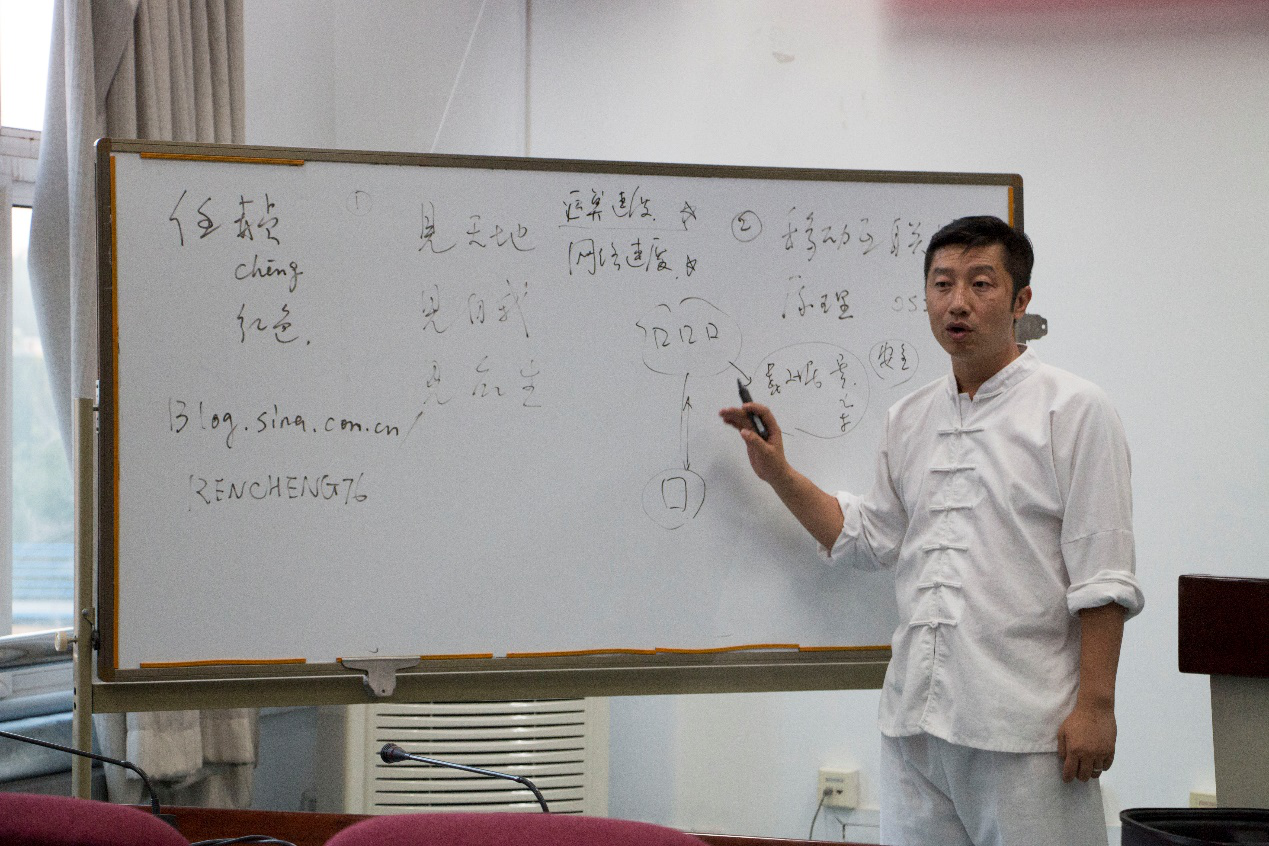 任赪
chēng
红色.
Blog.sina.com.cn/
RENCHENG76
①
见天地
见自我
见众生
运算速度
网络速度
②
移动互联
原理
口口口
口
数据
安全